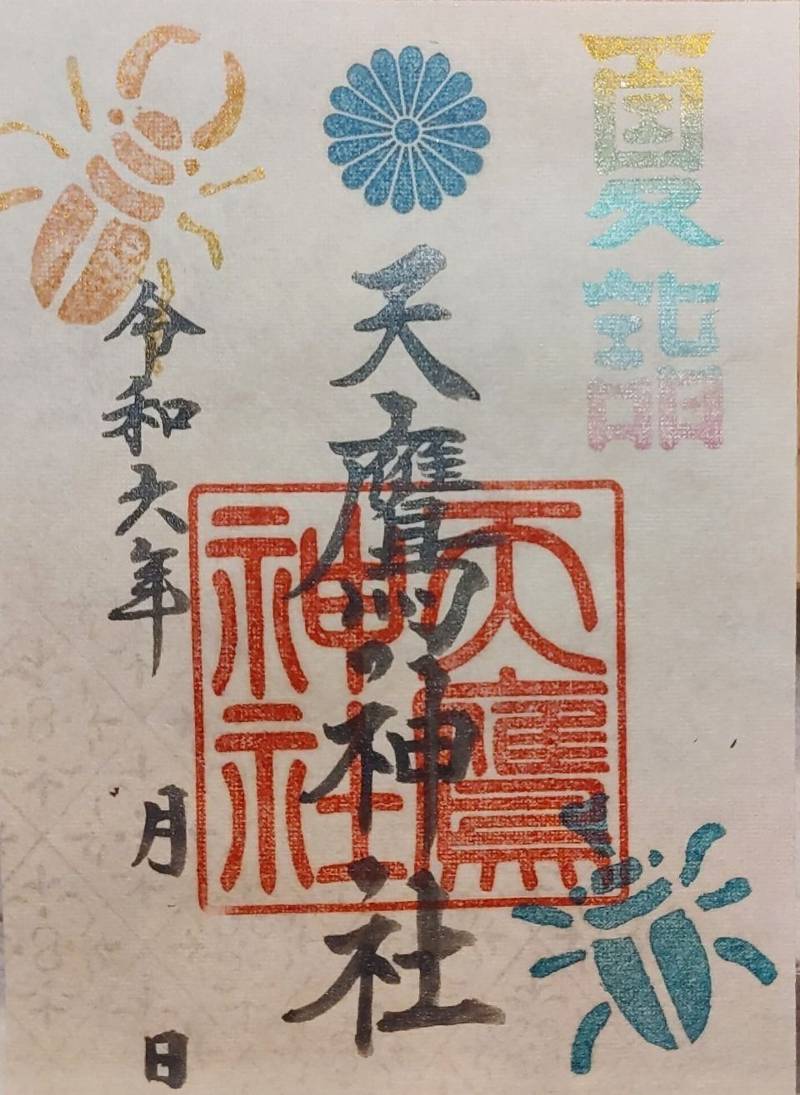 夏詣
天鷹神社
天鷹
神社
令和六年 月 日